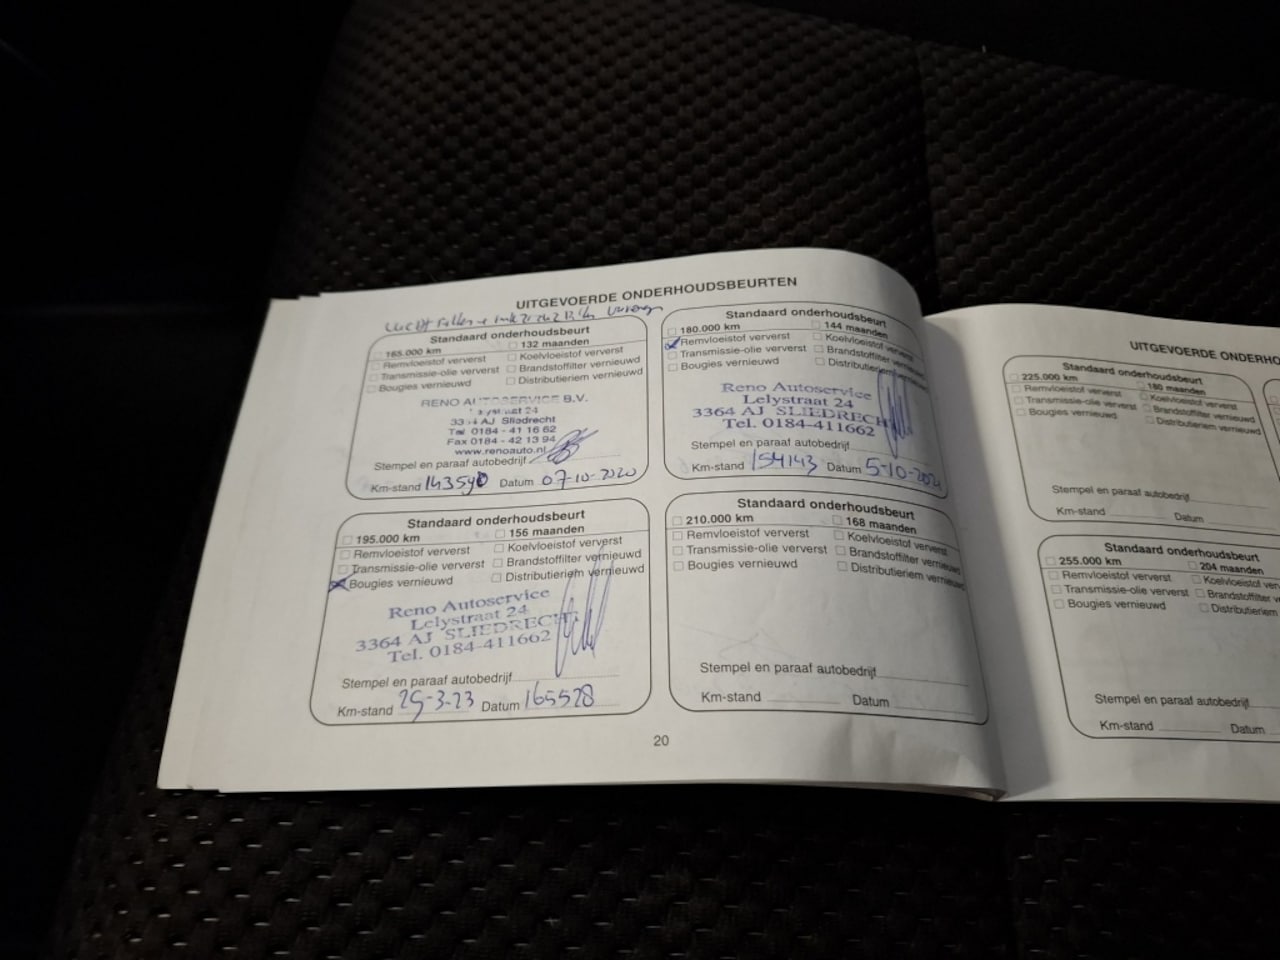 UITGEVOERDE ONDERHOUDSBEURTEN
Standaard onderhoudsbeurt
165.000 km 132 maanden
Remvloeistof ververst Koelvloeistof ververst
Transmissie-olie ververst Brandstoffilter vernieuwd
Bougies vernieuwd Distributieriem vernieuwd
RENO AUTOSERVICE B.V.
24
AJ Sliedrecht
Tel. 0184 - 41 16 62
Fax 0184 - 42 13 94
www.renoauto.nl
Stempel en paraaf autobedrijf
Km-stand 143590 Datum 07-10-2020
Standaard onderhoudsbeurt
180.000 km 144 maanden
Remvloeistof ververst Koelvloeistof ververst
Transmissie-olie ververst Brandstoffilter vernieuwd
Bougies vernieuwd Distributieriem vernieuwd
Reno Autoservice
Lelystraat 24
3364 AJ SLIEDRECHT
Tel. 0184-411662
Stempel en paraaf autobedrijf
Km-stand 154143 Datum 5-10-2021
Standaard onderhoudsbeurt
195.000 km 156 maanden
Remvloeistof ververst Koelvloeistof ververst
Transmissie-olie ververst Brandstoffilter vernieuwd
Bougies vernieuwd Distributieriem vernieuwd
Reno Autoservice
Lelystraat 24
3364 AJ SLIEDRECHT
Tel. 0184-411662
Stempel en paraaf autobedrijf
Km-stand 29-3-23 Datum 165528
Standaard onderhoudsbeurt
210.000 km 168 maanden
Remvloeistof ververst Koelvloeistof ververst
Transmissie-olie ververst Brandstoffilter vernieuwd
Bougies vernieuwd Distributieriem vernieuwd
Stempel en paraaf autobedrijf
Km-stand Datum
20
UITGEVOERDE ONDERHO
Standaard onderhoudsbeurt
225.000 km 180 maanden
Remvloeistof ververst Koelvloeistof ververst
Transmissie-olie ververst Brandstoffilter vernieuwd
Bougies vernieuwd Distributieriem vernieuwd
Stempel en paraaf autobedrijf
Km-stand Datum
Standaard onderhoudsbeurt
255.000 km 204 maanden
Remvloeistof ververst Koelvloeistof ververst
Transmissie-olie ververst Brandstoffilter v
Bougies vernieuwd Distributieriem
Stempel en paraaf autobedrijf
Km-stand Datum